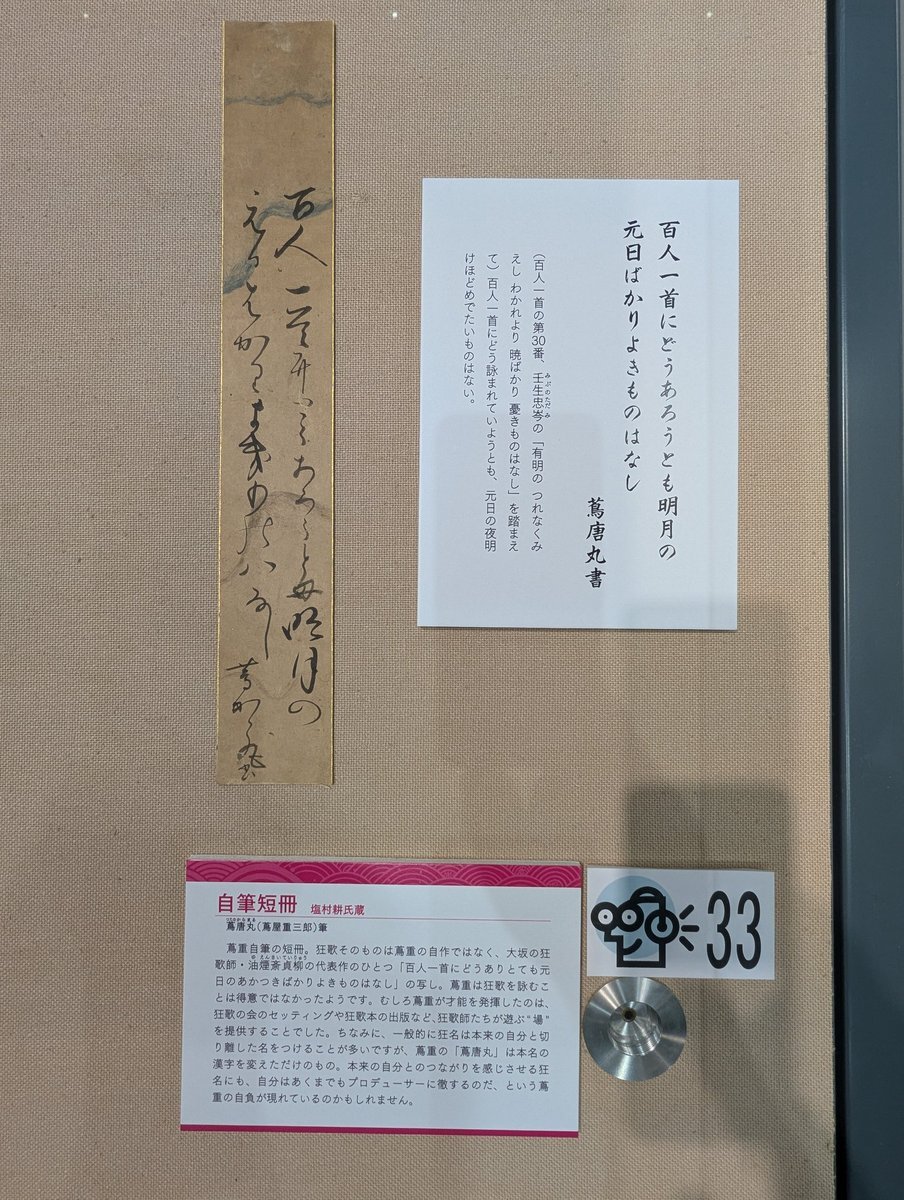 百人一首にどうあろうとも明月の
元日ばかりよきものはなし
蔦唐丸書
(百人一首の第30番、壬生忠岑の「有明の つれなくみ
みぶのただみ
えし わかれより 暁ばかり 憂きものはなし」を踏まえ
て)百人一首にどう詠まれていようとも、元日の夜明
けほどめでたいものはない。
百人一首
明月の
自筆短冊 塩村耕氏蔵
つたのからまる
蔦唐丸(蔦屋重三郎)筆
蔦重自筆の短冊。狂歌そのものは蔦重の自作ではなく、大坂の狂
ゆえんさいていりゅう
歌師・油煙斎貞柳の代表作のひとつ「百人一首にどうありとても元
日のあかつきばかりよきものはなし」の写し。蔦重は狂歌を詠むこ
とは得意ではなかったようです。むしろ蔦重が才能を発揮したのは、
狂歌の会のセッティングや狂歌本の出版など、狂歌師たちが遊ぶ“場”
を提供することでした。ちなみに、一般的に狂名は本来の自分と切
り離した名をつけることが多いですが、蔦重の「蔦唐丸」は本名の
漢字を変えただけのもの。本来の自分とのつながりを感じさせる狂
名にも、自分はあくまでもプロデューサーに徹するのだ、という蔦
重の自負が現れているのかもしれません。
33